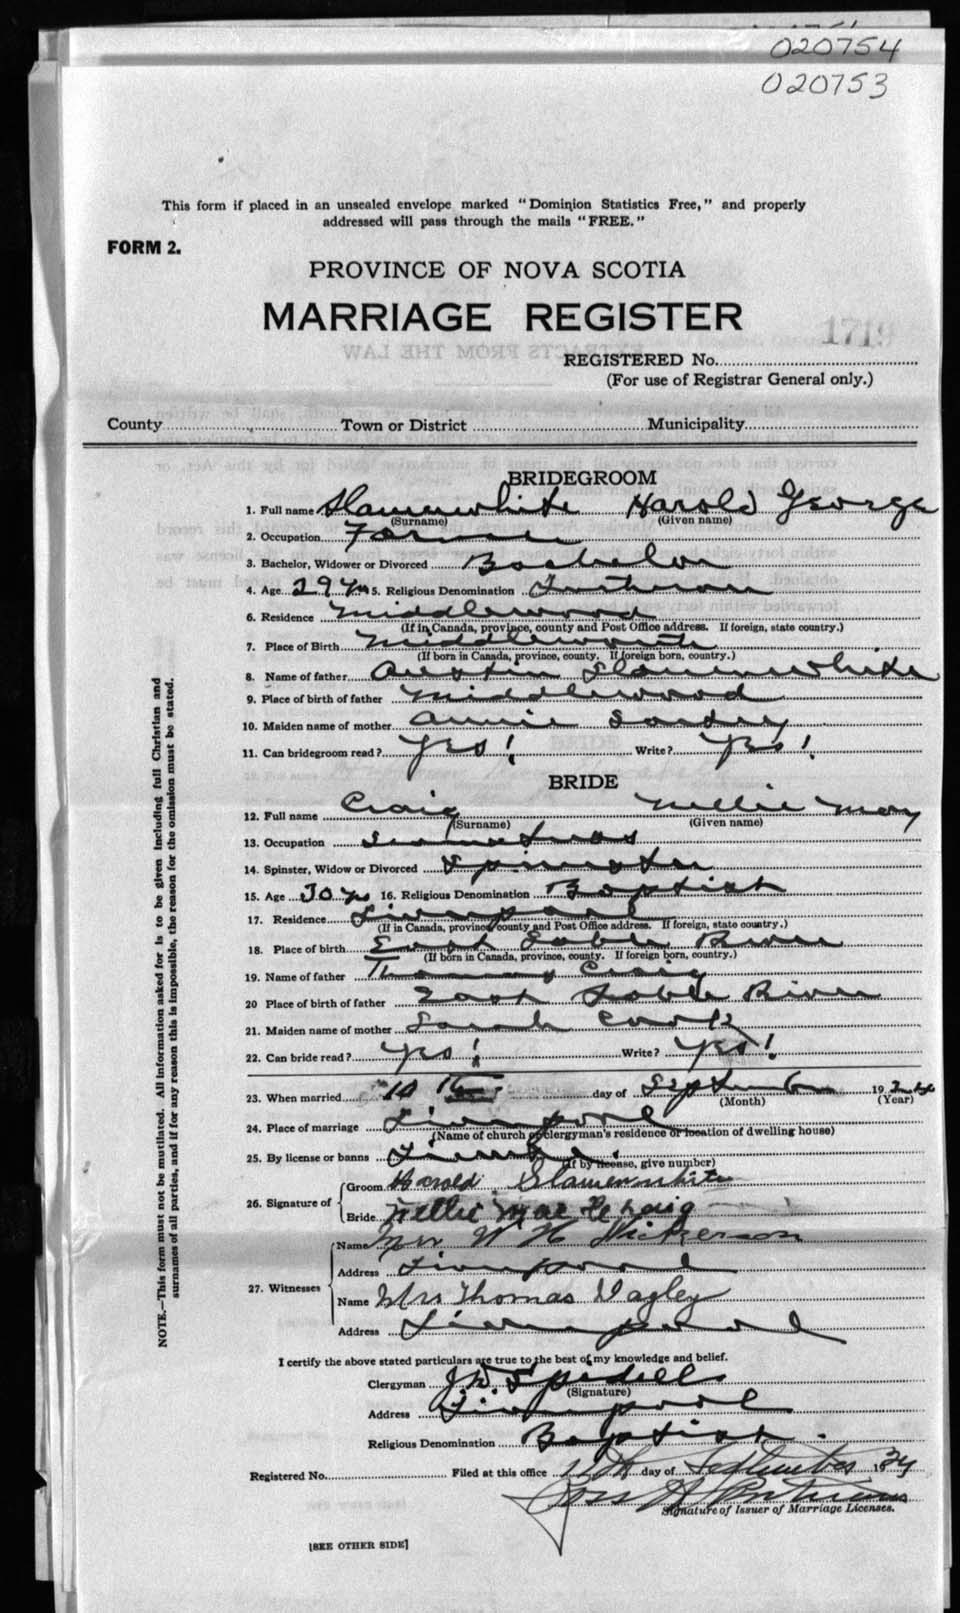 020754
020753
This form if placed in an unsealed envelope marked "Dominion Statistics Free," and properly
addressed will pass through the mails "FREE."
FORM 2.
PROVINCE OF NOVA SCOTIA
MARRIAGE REGISTER
1719
REGISTERED No.
(For use of Registrar General only.)
County Town or District Municipality
BRIDEGROOM
1. Full name Slauenwhite Harold George
(Surname) (Given name)
2. Occupation Farmer
3. Bachelor, Widower or Divorced Bachelor
4. Age 29 yrs 5. Religious Denomination Lutheran
6. Residence Middlewood
(If in Canada, province, county and Post Office address. If foreign, state country.)
7. Place of Birth Middlewood
(If born in Canada, province, county. If foreign born, country.)
8. Name of father Austin Slauenwhite
9. Place of birth of father Middlewood
10. Maiden name of mother Annie
11. Can bridegroom read? Yes! Write? Yes!
BRIDE
12. Full name Craig Nellie May
(Surname) (Given name)
13. Occupation
14. Spinster, Widow or Divorced Spinster
15. Age 30 yrs 16. Religious Denomination Baptist
17. Residence Liverpool
(If in Canada, province, county and Post Office address. If foreign, state country.)
18. Place of birth East Sable River
(If born in Canada, province, county. If foreign born, country.)
19. Name of father Thomas Craig
20 Place of birth of father East Sable River
21. Maiden name of mother Sarah Cook
22. Can bride read? Yes! Write? Yes!
23. When married 10th day of September 19
(Month) (Year)
24. Place of marriage Liverpool
(Name of church or clergyman's residence or location of dwelling house)
25. By license or banns License
(If by license, give number)
26. Signature of
Groom Harold Slauenwhite
Bride Nellie Mae Craig
27. Witnesses
Name Mrs W H Nickerson
Address Liverpool
Name Mrs Thomas Vagley
Address Liverpool
I certify the above stated particulars are true to the best of my knowledge and belief.
Clergyman
(Signature)
Address Liverpool
Religious Denomination Baptist.
Registered No. Filed at this office 12th day of September 1934
Signature of Issuer of Marriage Licenses.
[SEE OTHER SIDE]
NOTE.—This form must not be mutilated. All information asked for is to be given including full Christian and
surnames of all parties, and if for any reason this is impossible, the reason for the omission must be stated.